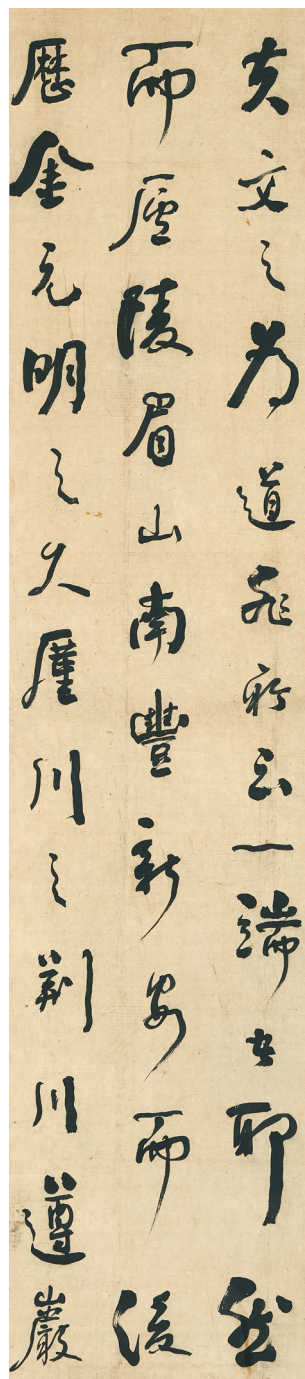 夫文之為道所云一端者耶然
而廬陵眉山南豐新安而後
歷金元明之久厪川之荊川遵巖